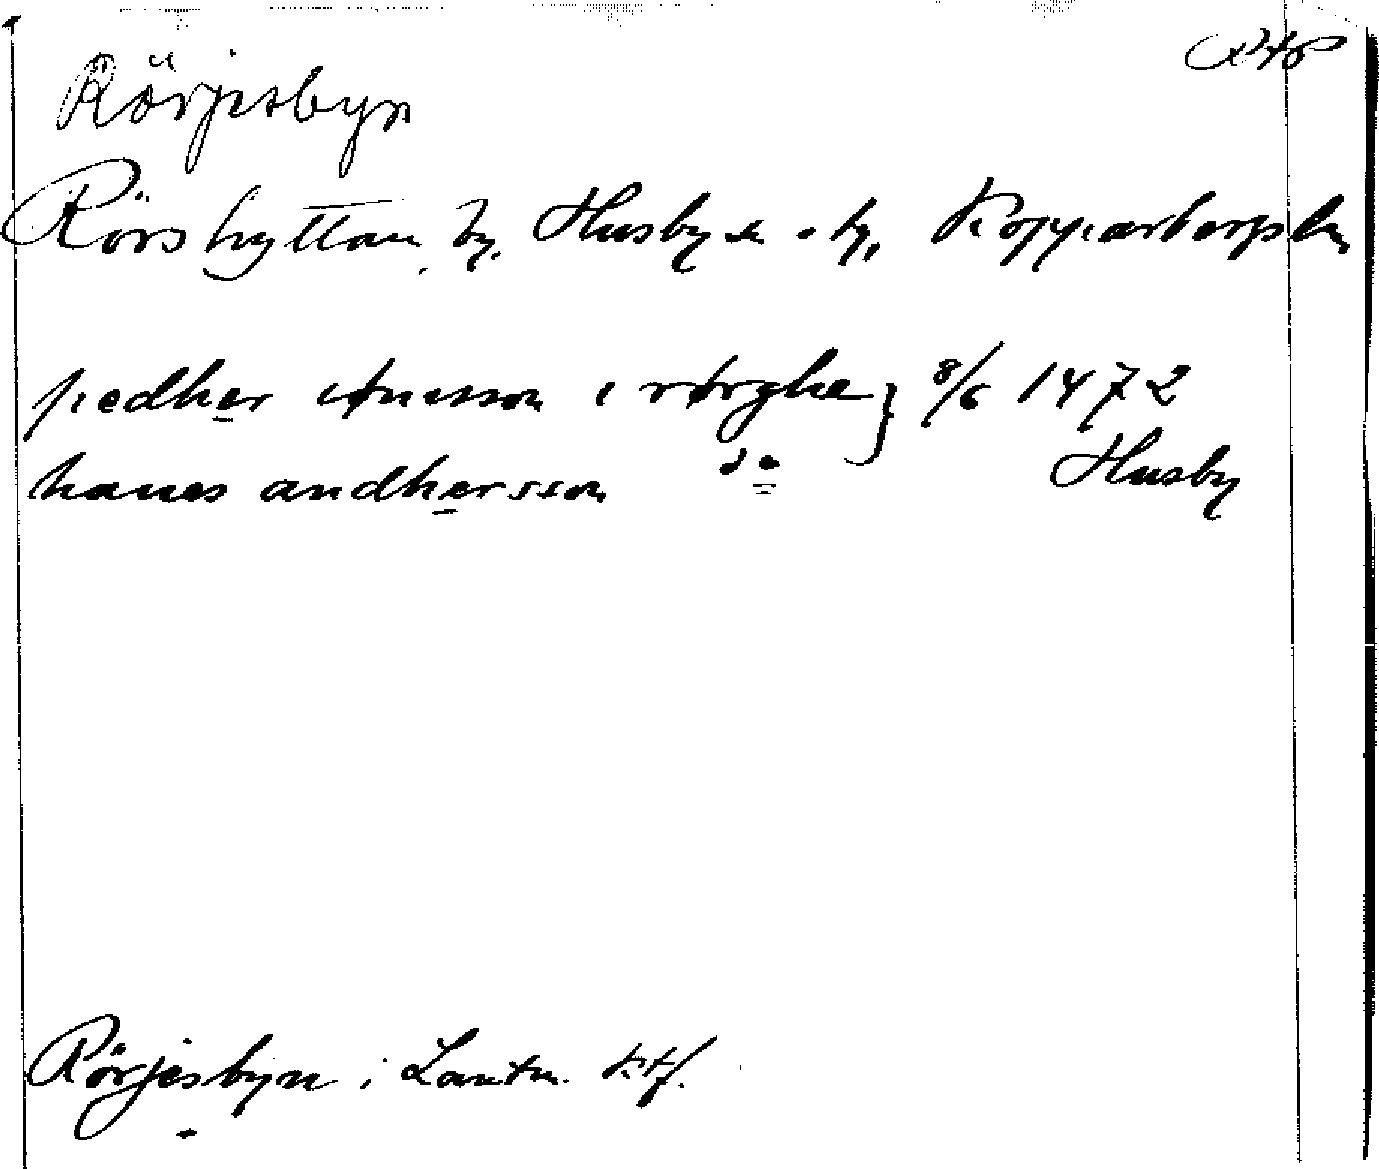 Rörjesbyn
Rörshyttan, by, Husby sn o. tg, Kopparbergs ln
pedher ionsson i rørghe } 8/6 1472
hanes andhersson do Husby
Rörjesbyn i Lantm. ktf.